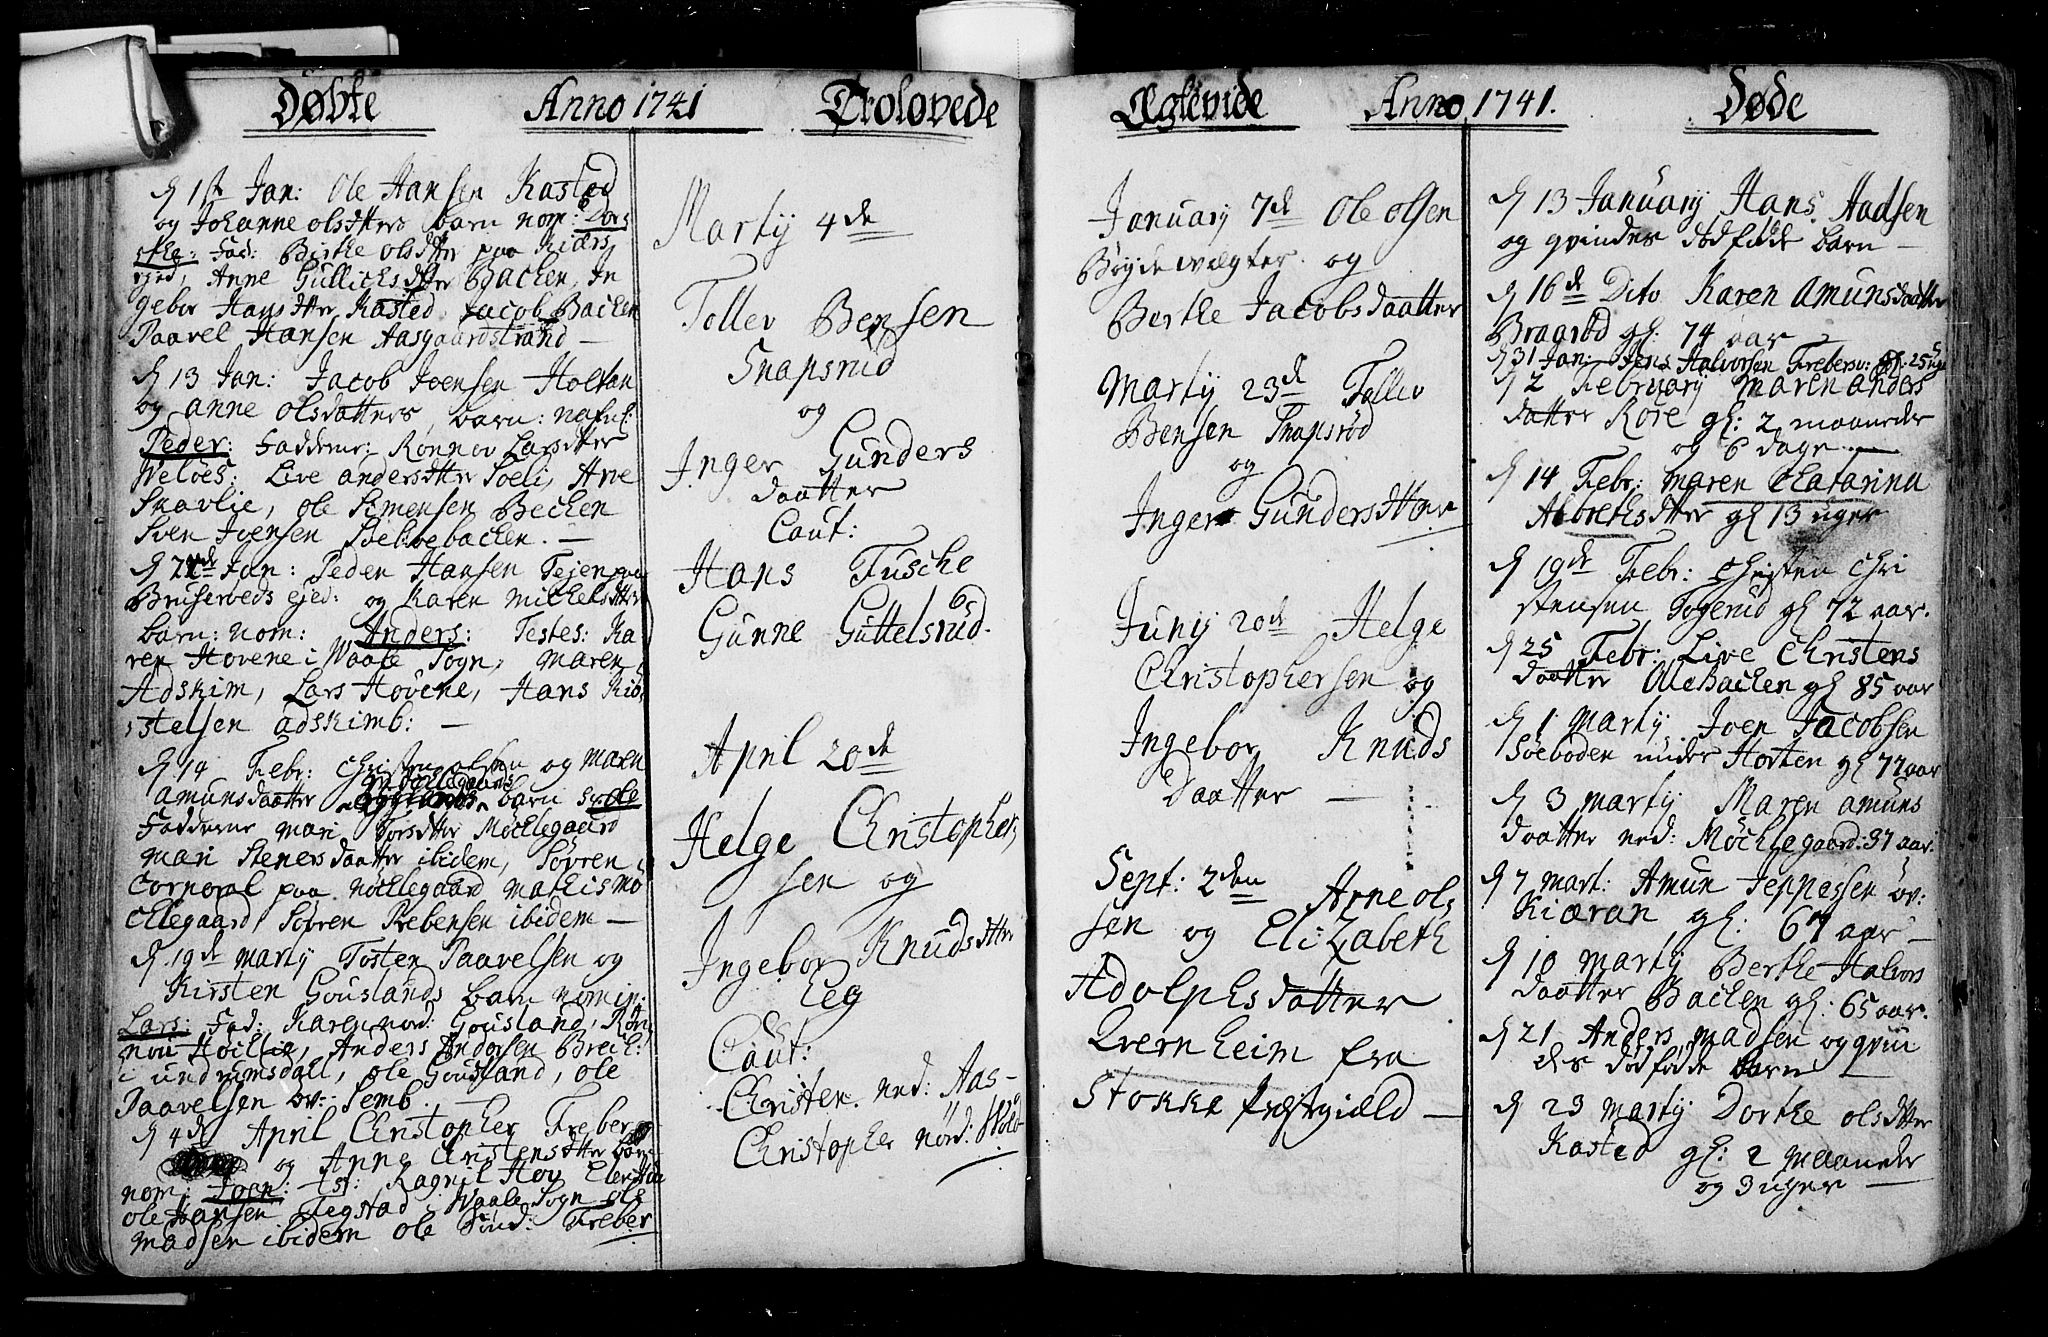 Døbte Anno 1741 Trolovede
d 1st Jan: Ole Hansen Kasted
og Johanne olsdtters barn nom: Dor
the: Fad: Birthe olsdtter paa Kiærs
ejed, Anne Gullichsdtter Bachen, In
gebor Hansdtter Kasted, Jacob Bachen
Paavel Hansen Aasgaardstrand —
d 13 Jan: Jacob Joensen Holtan
og anne olsdatters barn: nafnl:
Peder: Fadderne: Rønnov Larsdtter
Weløes: Live andersdtter Soeli, Arne
Skavlie, ole Simensen Bechen
Sven Joensen Bechen. —
d 22de Jan: Peder Hansen Tejen paa
Bruserveds ejed: og Karen Michelsdtter
barn: nom: Anders: Testes: Ka
ren Hovene i Waale Sogn, Maren
Adskim, Lars Hovene, Hans Kiø
stelsen adskimb: —
d 14 Febr: Christen olsen og Maren
amunsdaatter Møchlegaards barn s: ole
Fadderne Mari Torsdtter Møchlegaard
Mari Stenersdaatter ibidem, Søvren
Corporal paa Møchlegaard Mathis Mø
chlegaard, Søvren Prebensen ibidem —
d 19de Marty Tosten Paavelsen og
Kirsten Gouslands barn nomin:
Lars: Fad: Karen nord: Gousland, Røn
nou Høillie, Anders Andersen Brech:
i undrumsdall, ole Gousland, ole
Paavelsen øv: Semb. —
d 4de April Christopher Freber
og Anne Christensdtter barn
nom: Joen: Tst: Ragnil Hov Eler
ole Hansen Tegstad i Waale Sogn ole
Madsen ibidem ole Sund: Freber
Marty 4de
Tollev Bensen
Snapsrud
og
Inger Gunders
daatter
Caut:
Hans Fusche
Gunne Guttelsrud.
April 20de
Helge Christopher
sen og
Ingebor Knudsdtter
Leg
Caut:
Christen ned: Aas-
Christopher nørd: Wold
Ægtevide Anno 1741. Døde
January 7de Ole olsen
Bøydewægter og
Berthe Jacobsdaatter
Marty 23de Tollev
Bensen Snapsrød
og
Inger Gundersdtter
Juny 20de Helge
Christophersen og
Ingebor Knuds
Daatter —
Sept: 2den Arne ol
sen og Elizabeth
Adolphsdatter
Qvernheim fra
Stokke Præstgiæld —
d 13 January Hans Aadsen
og qvindes dødfødde barn —
d 16de Dito Karen Amunsdaatter
Braarød gl: 74 aar —
d 31 Jan: Jens Halvorsen Frebersv: gl. 25 uger
d 2 February Maren anders
datter Røre gl: 2 maaneder
og 6 dage —
d 14 Febr: Maren Chatarina
Albrethsdtter gl 13 uger
d 19de Febr: Christen Chri
stensen Togerud gl 72 aar.
d 25 Febr: Live Christens
daatter OleBachen gl 85 aar
d 1 Marty Joen Jacobsen
Søeboden under Horten gl 77 aar
d 3 Marty Maren amuns
daatter ned: Møchlegaard: 37 aar:
d 7 mart: Amun Jeppessen øv:
Kiæran, gl: 67 aar —
d 10 Marty Berthe Halvors
daatter Bachen gl: 65 aar.
d 21 Anders Madsen og qvin
des dødfødde barn —
d 23 Marty Dorthe olsdtter
Kasted gl: 2 Maaneder
og 3 uger —